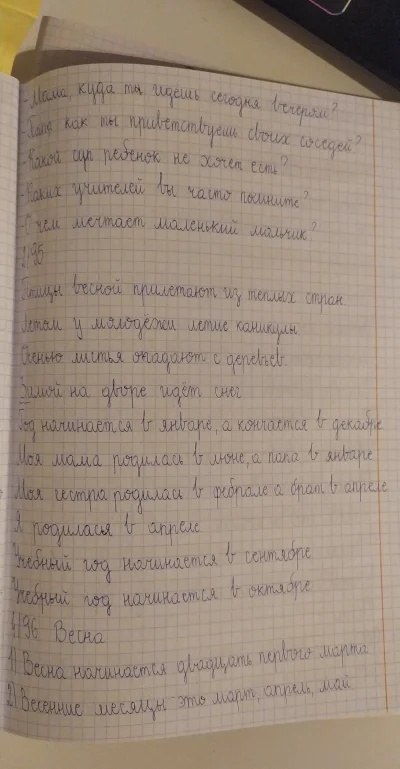 - Мама, куда ты идёшь сегодня вечером?
- Папа как ты приветствуешь своих соседей?
- Какой суп ребёнок не хочет есть?
- Каких учителей вы часто помните?
- О чём мечтает маленький мальчик?
2/95
Птицы весной прилетают из тёплых стран
Летом у молодёжи летие каникулы
Осенью листья опадают с деревьев.
Зимой на дворе идёт снег
Год начинается в январе, а кончается в декабре
Моя мама родилась в июне, а папа в январе
Моя сестра родилась в феврале а брат в апреле
Я родилася в апреле
Учебный год начинается в сентябре
Учебный год начинается в октябре
4/96 Весна
1) Весна начинается двадцать первого марта
2) Весенние месяцы это март, апрель, май